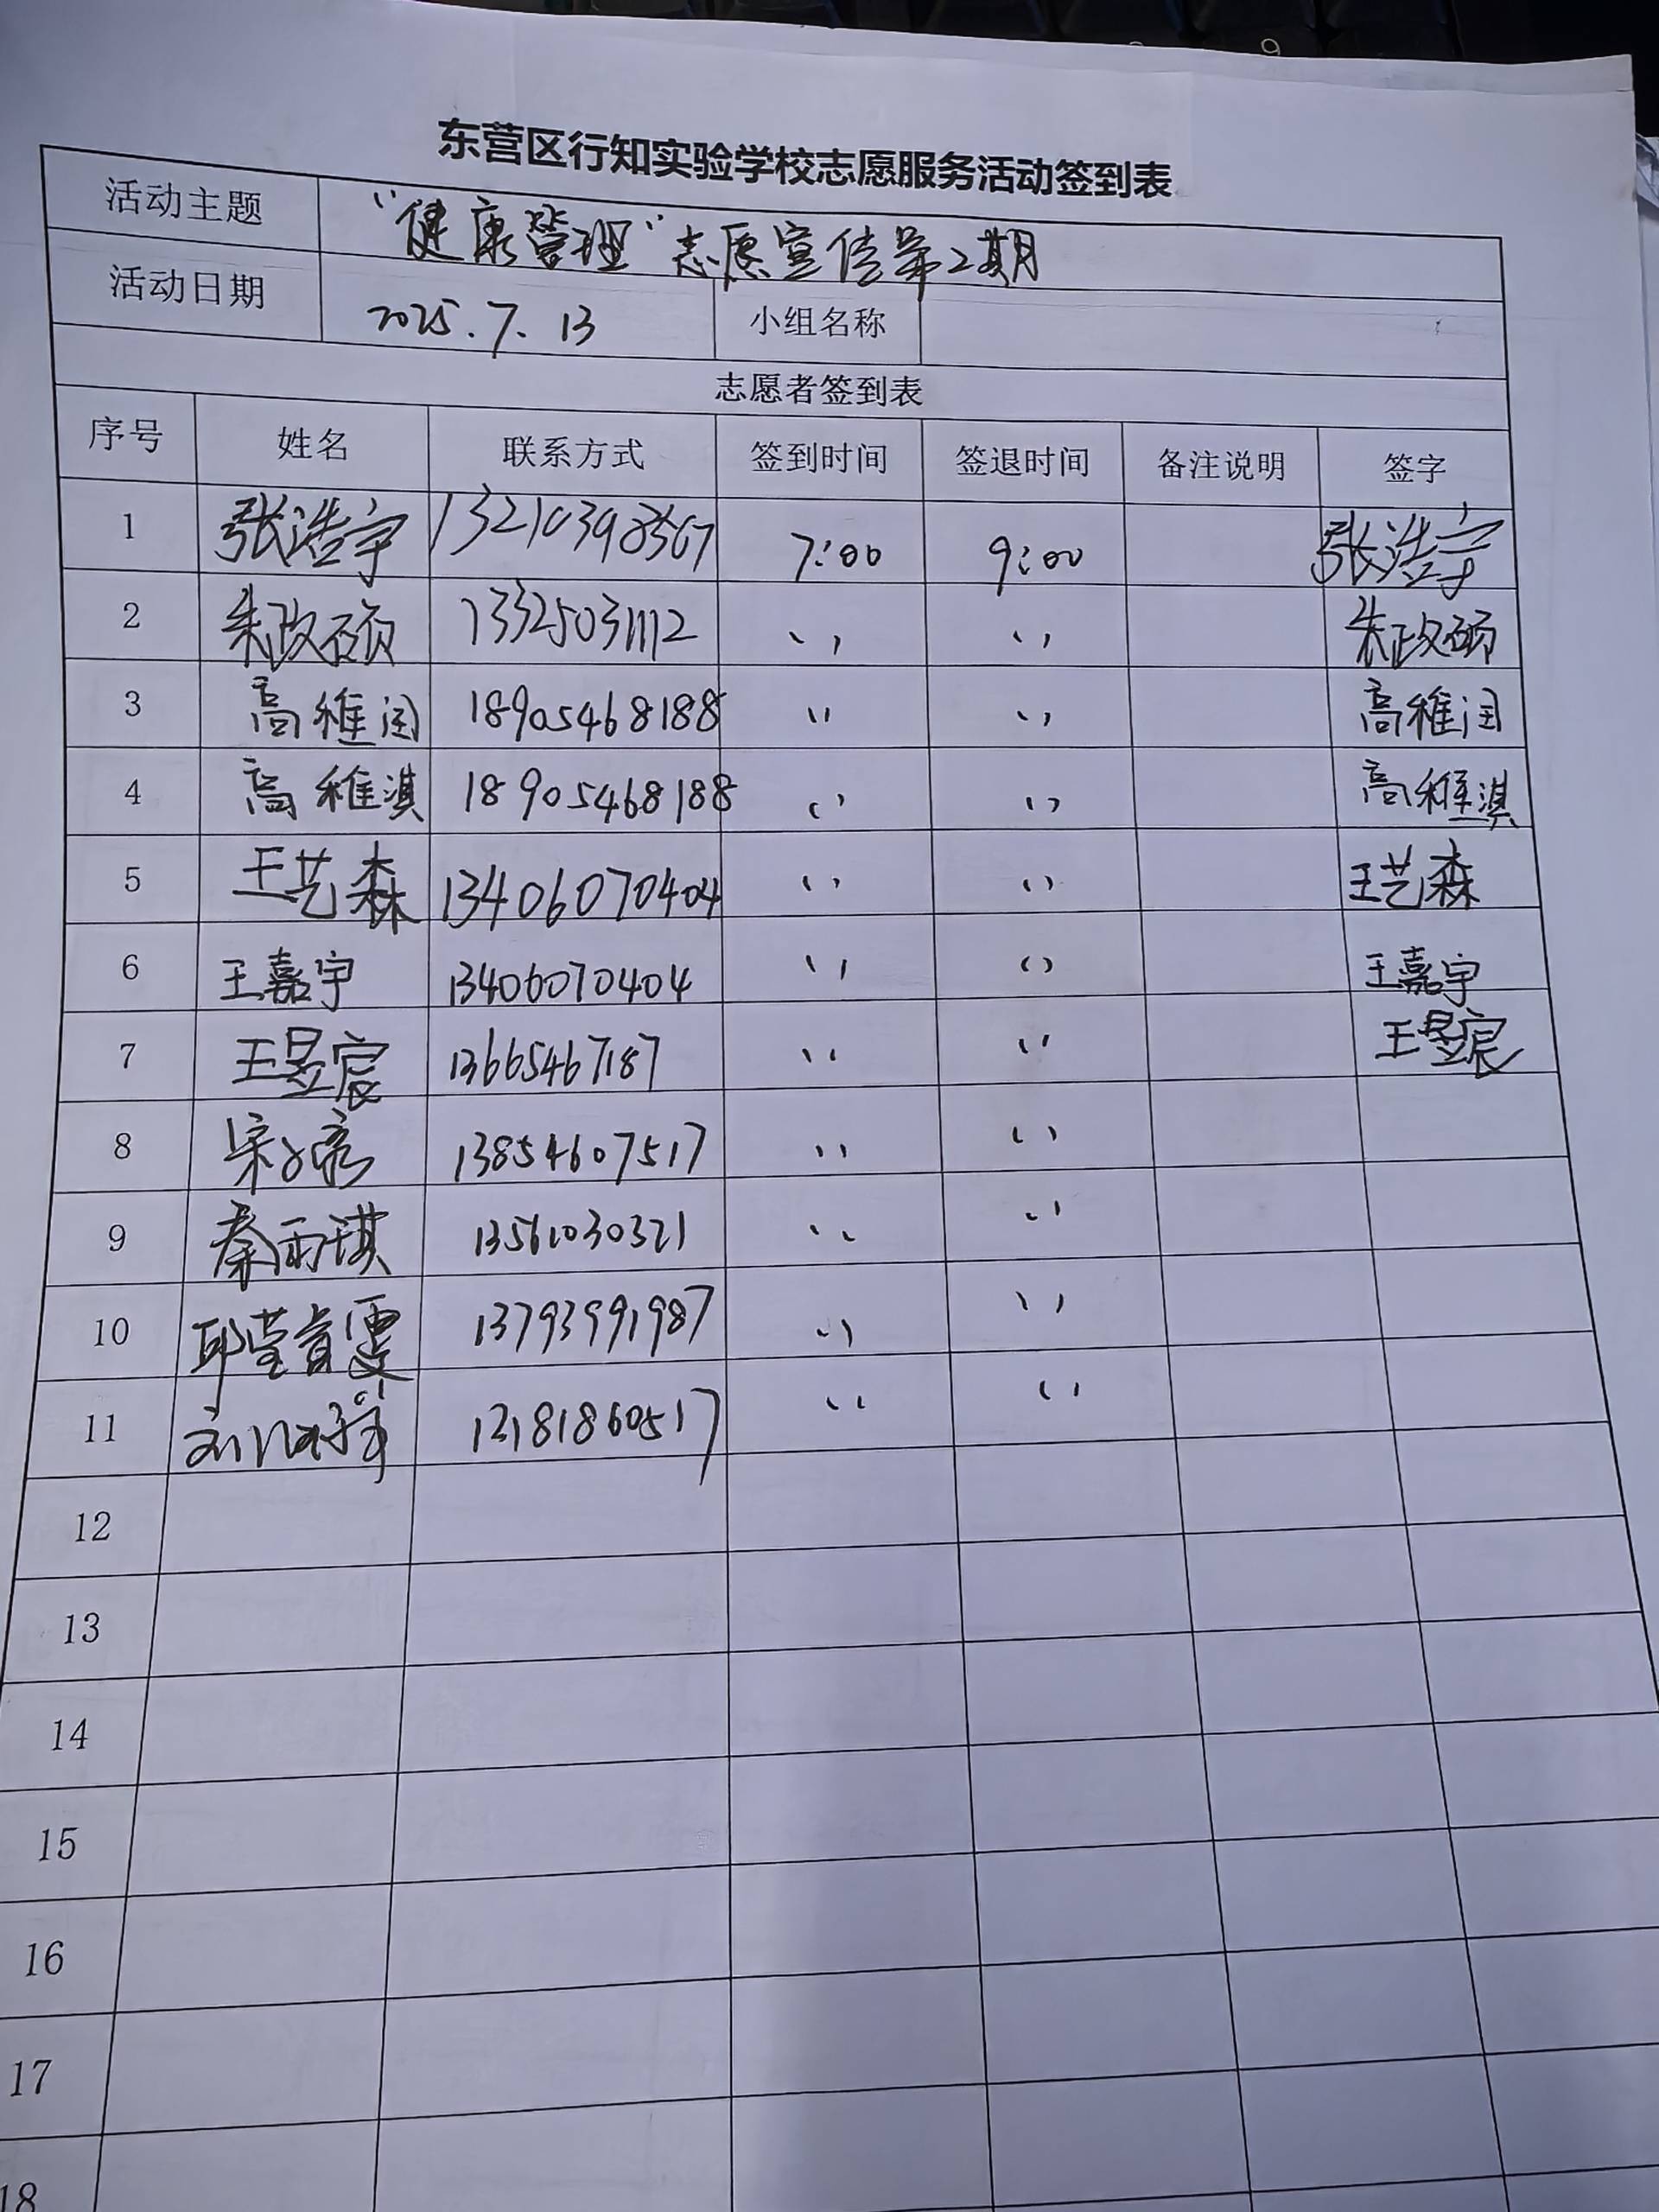 东营区行知实验学校志愿服务活动签到表
活动主题 "健康管理"志愿宣传第2期
活动日期 2025.7.13 小组名称
志愿者签到表
序号 姓名 联系方式 签到时间 签退时间 备注说明 签字
1 张浩宇 13210398567 7:00 9:00 张浩宇
2 朱政硕 13325031112 〃 〃 朱政硕
3 高稚闰 18905468188 〃 〃 高稚闰
4 高稚淇 18905468188 〃 〃 高稚淇
5 王艺森 13406070404 〃 〃 王艺森
6 王嘉宇 13406070404 〃 〃 王嘉宇
7 王昱宸 13665467187 〃 〃 王昱宸
8 宋 13854607517 〃 〃
9 秦雨琪 13561030321 〃 〃
10 邱莹育雯 13793991987 〃 〃
11 刘 12181860517 〃 〃
12
13
14
15
16
17
18